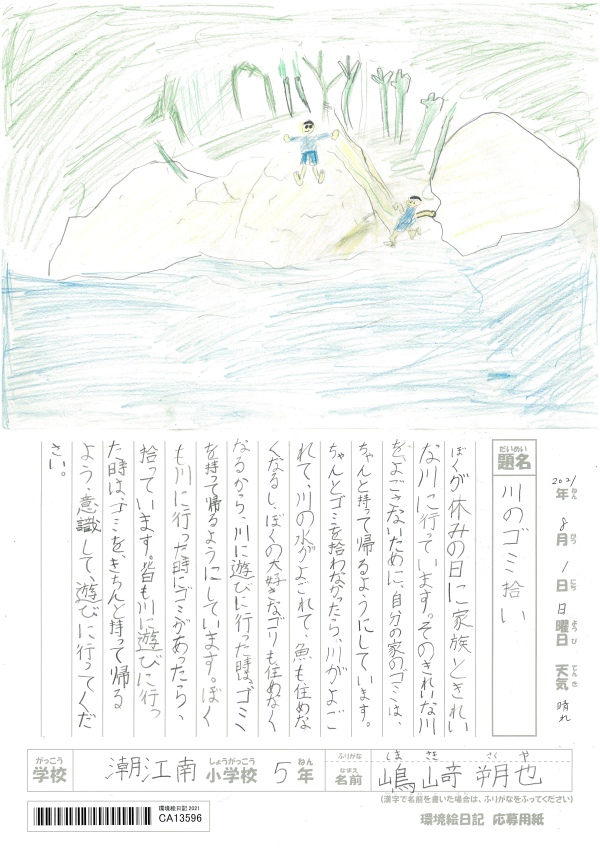 2021年ねん 8月がつ 1日にち 日曜日ようび 天気てんき 晴れ
題名だいめい 川のゴミ拾い
ぼくが休みの日に家族ときれい
な川に行っています。そのきれいな川
をよごさないために、自分の家のゴミは、
ちゃんと持って帰るようにしています。
ちゃんとゴミを拾わなかったら、川がよご
れて、川の水がよごれて、魚も住めな
くなるし、ぼくの大好きなゴリも住めなく
なるから、川に遊びに行った時は、ゴミ
を持って帰るようにしています。ぼく
も川に行った時にゴミがあったら、
拾っています。皆も川に遊びに行っ
た時は、ゴミを、きちんと持って帰る
よう、意識して、遊びに行ってくだ
さい。
がっこう しょうがっこう ねん
学校 潮江南 小学校 5年
ふりがな しま さき さく や
なまえ
名前 嶋﨑 朔也
(漢字で名前を書いた場合は、ふりがなをふってください)
環境絵日記 応募用紙
環境絵日記 2021
CA13596